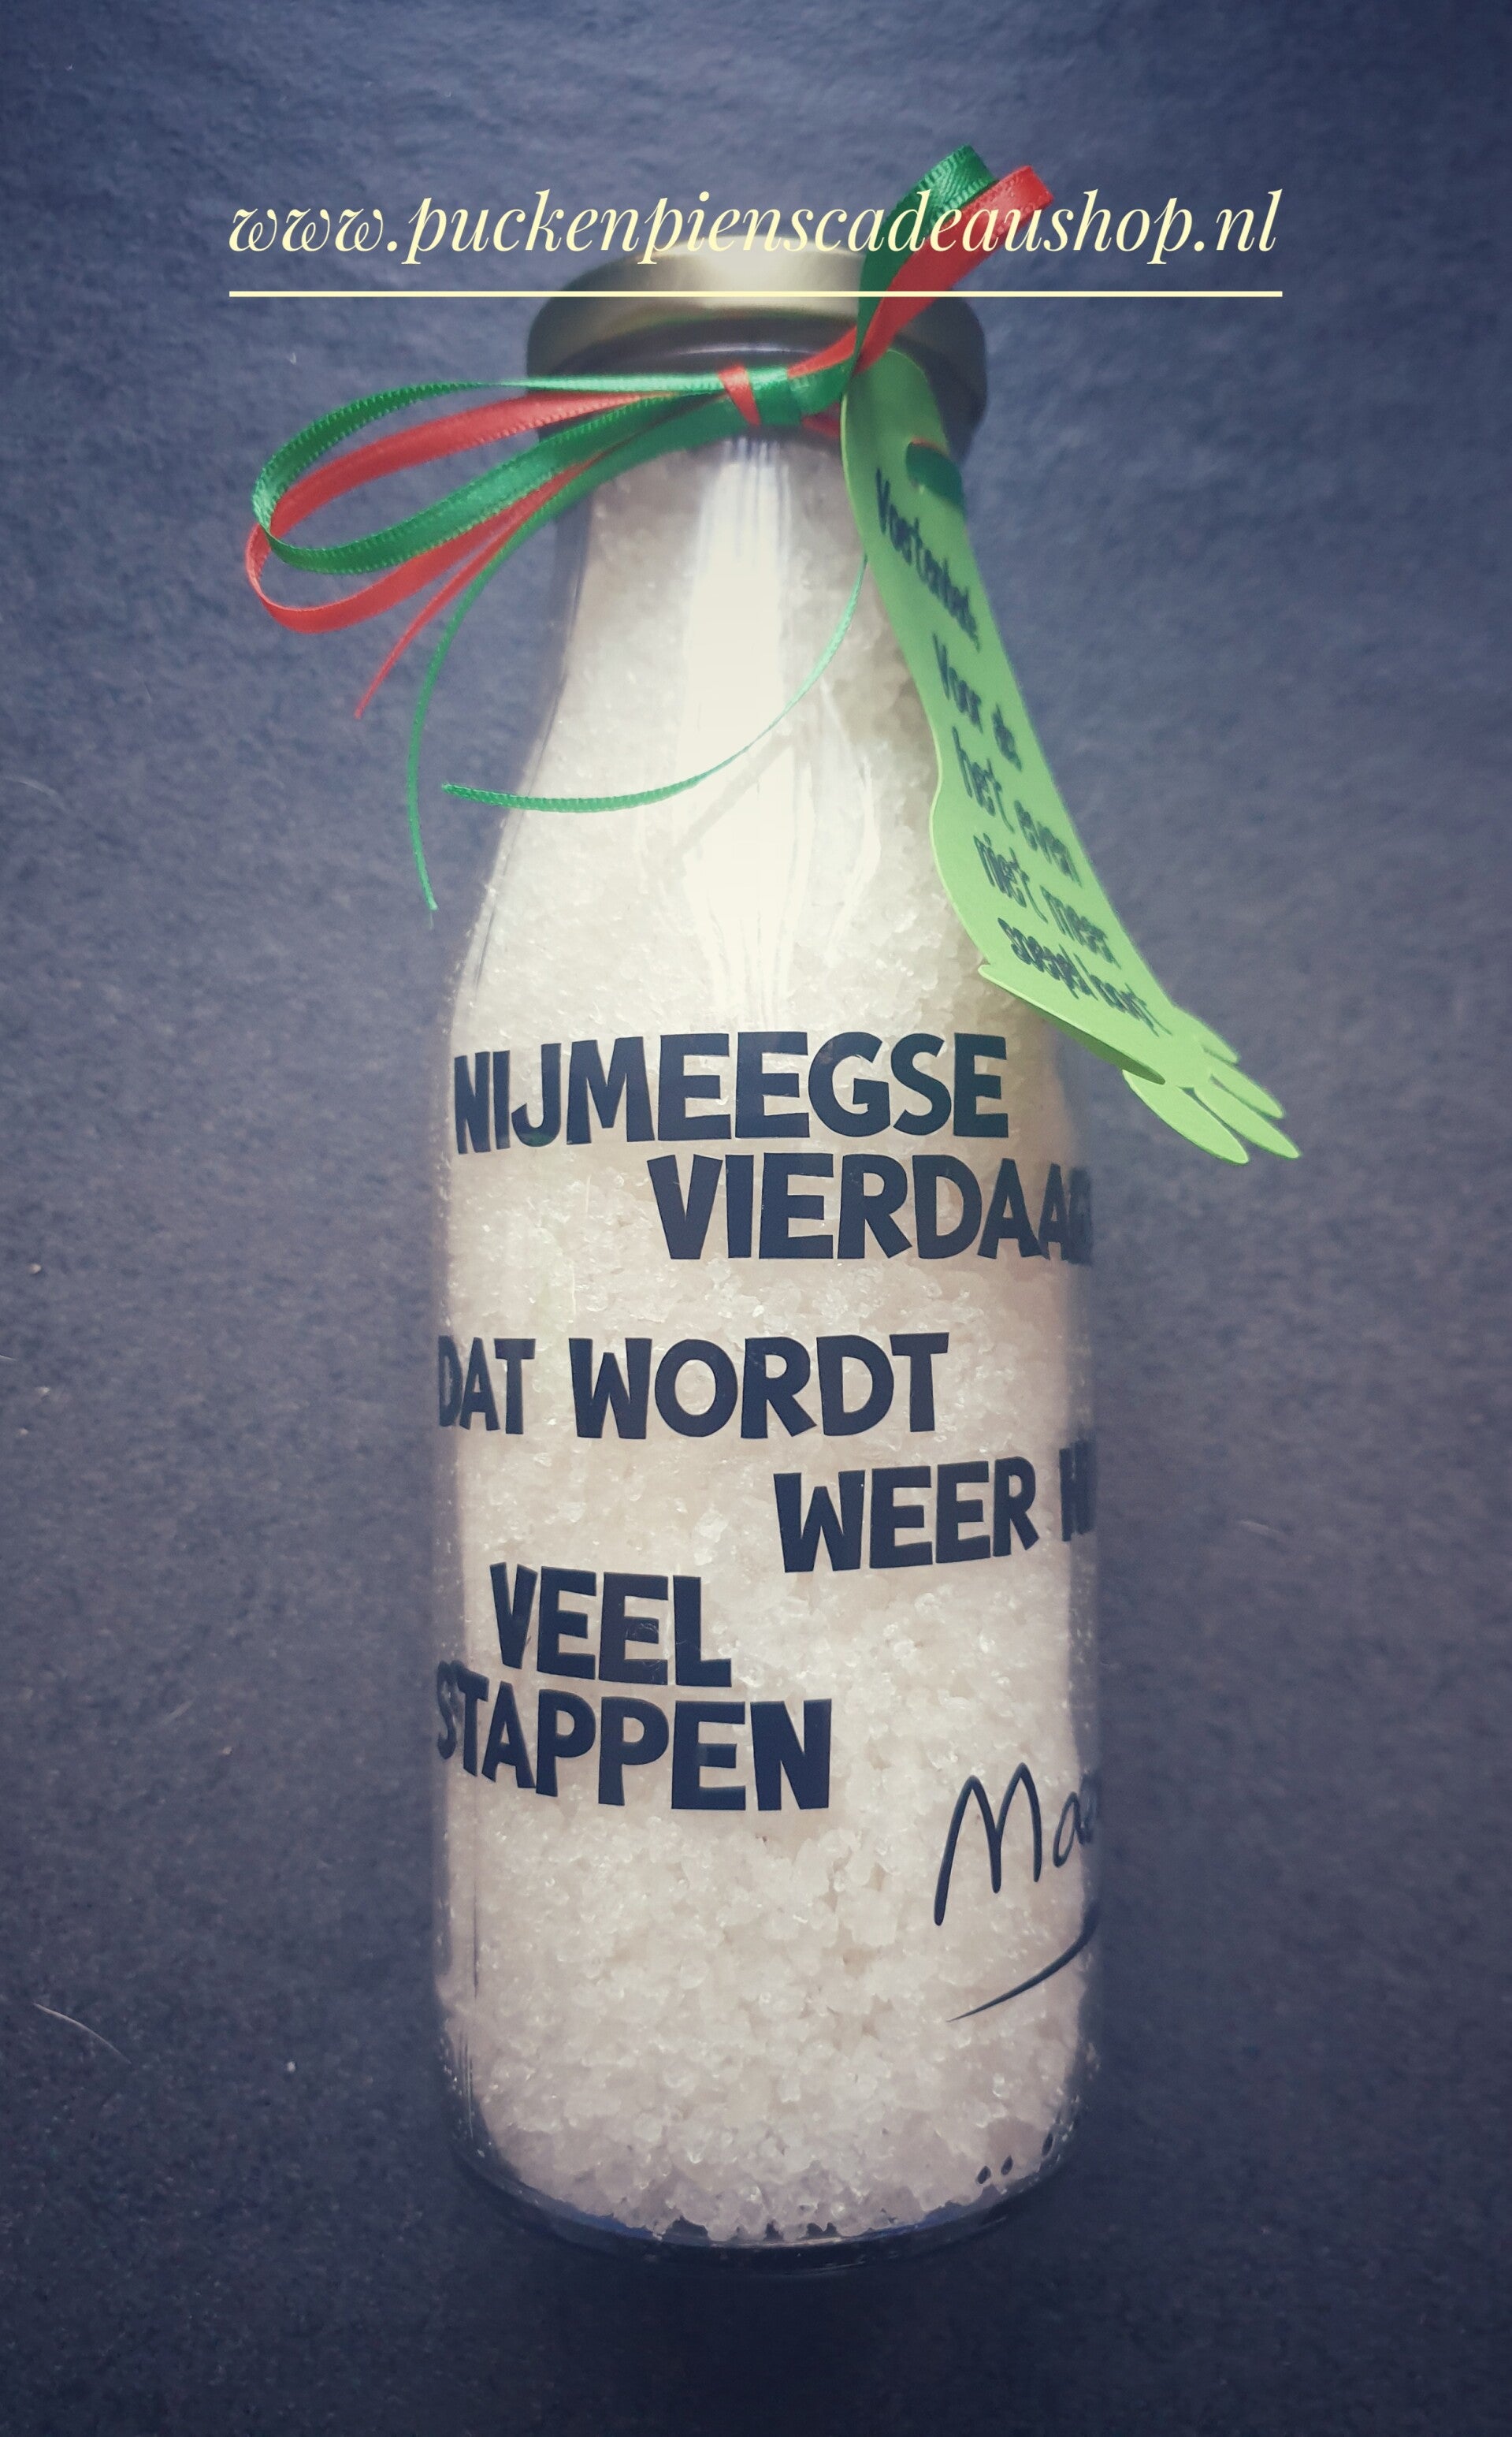 www.puckenpienscadeaushop.nl
Voetenbad
Voor als
het even
niet meer
soepel loopt
NIJMEEGSE
VIERDAAG
DAT WORDT
WEER
VEEL
STAPPEN
Ma